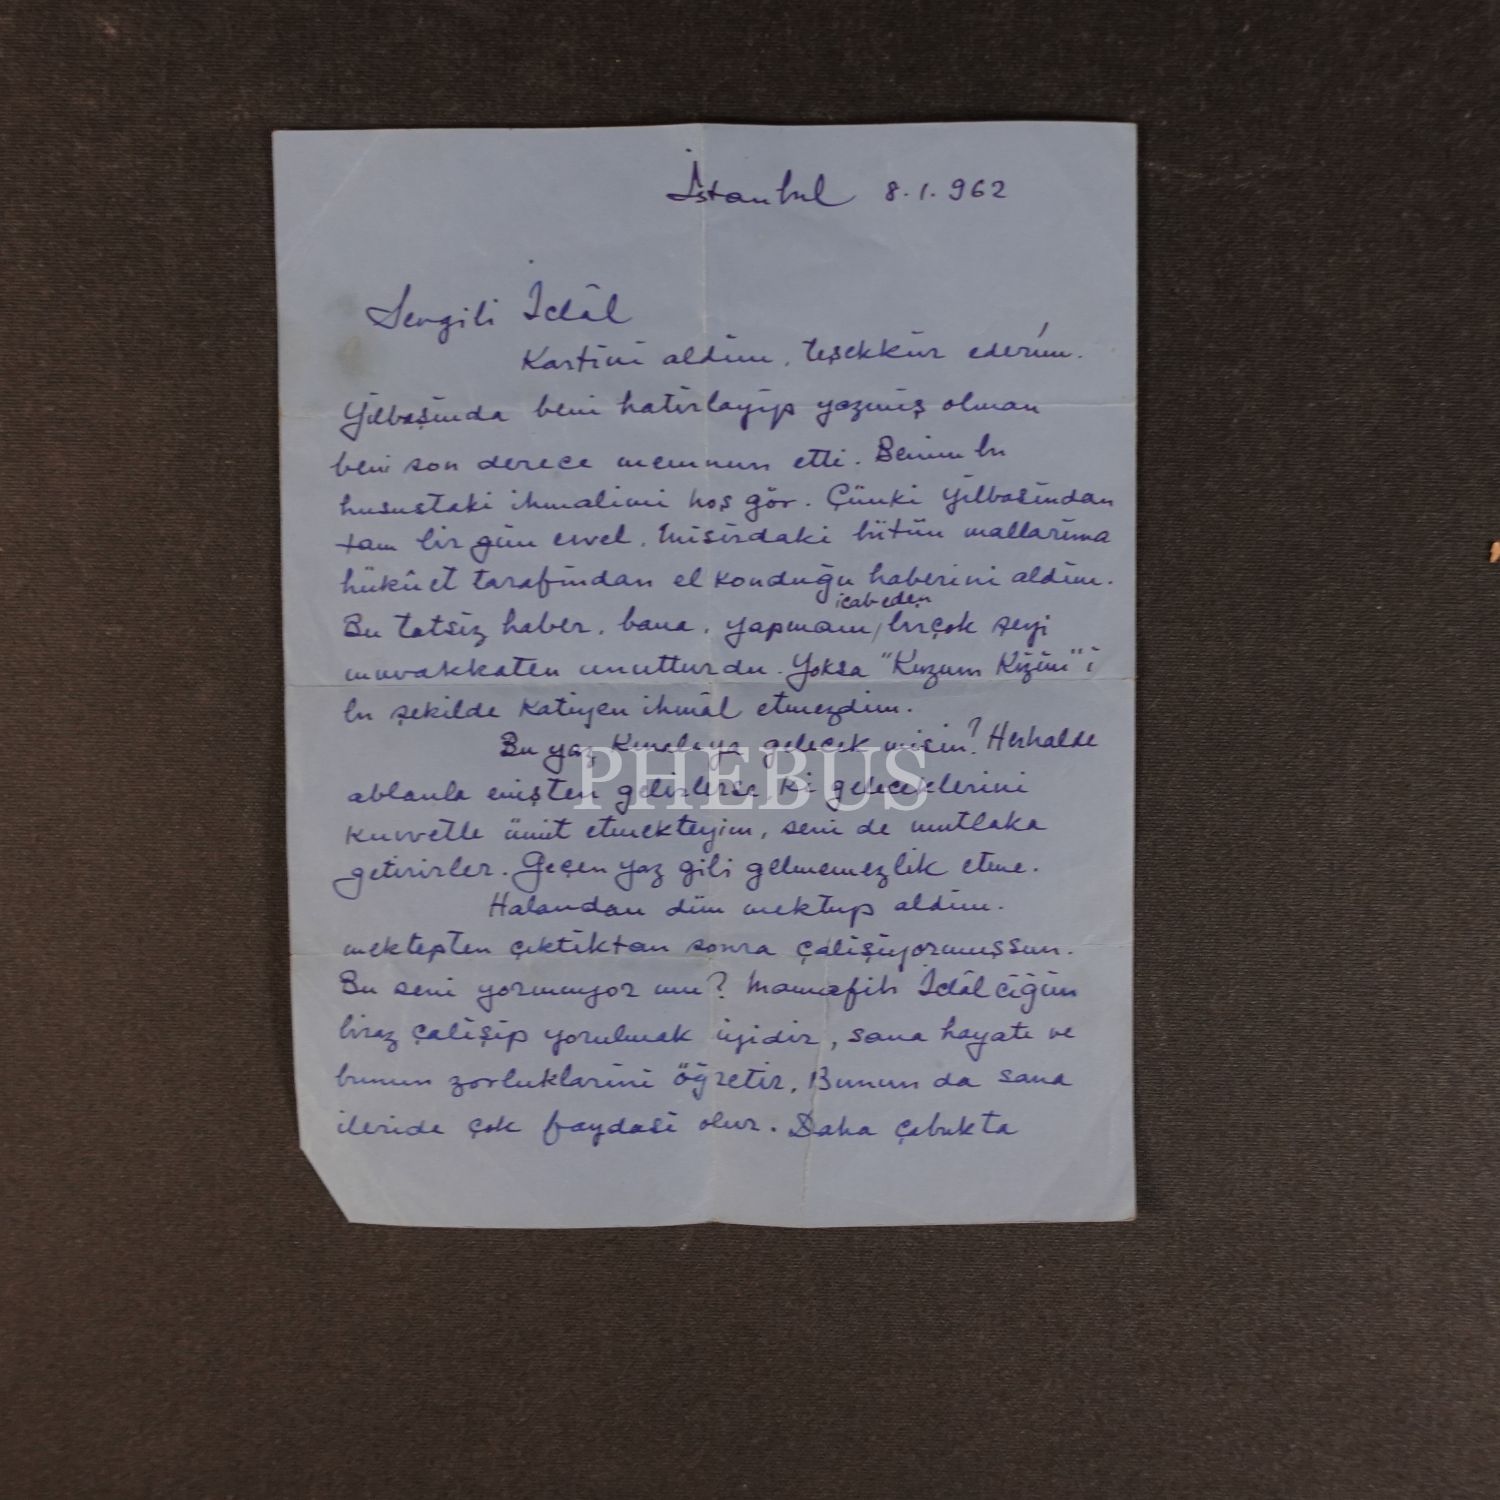 İstanbul 8.1.962
Sevgili İdâl
Kartini aldim, teşekkür ederim.
Yilbaşinda beni hatirlayip yazmiş olman
beni son derece memnun etti. Benim bu
husustaki ihmalimi hoş gör. Çünki yilbaşindan
tam bir gün evvel, Misirdaki bütün mallarima
hükûet tarafindan el konduğu haberini aldim.
icabeden
Bu tatsiz haber, bana, yapmam, birçok şeyi
muvakkaten unutturdu. Yoksa "Kuzum Kizim" i
bu şekilde katiyen ihmâl etmezdim.
Bu yaz Kınalıya gelecek misin? Herhalde
ablanla enişten gelirlerse, ki geleceklerini
kuvvetle ümit etmekteyim, seni de mutlaka
getirirler. Geçen yaz gibi gelmemezlik etme.
Halandan dün mektup aldim.
mektepten çıktiktan sonra çalişiyormuşsun.
Bu seni yormuyor mu? Mamafih İdâlciğim
biraz çalişip yorulmak iyidir, sana hayatı ve
bunun zorluklarini öğretir. Bunun da sana
ileride çok faydasi olur. Daha çabukta
PHEBUS